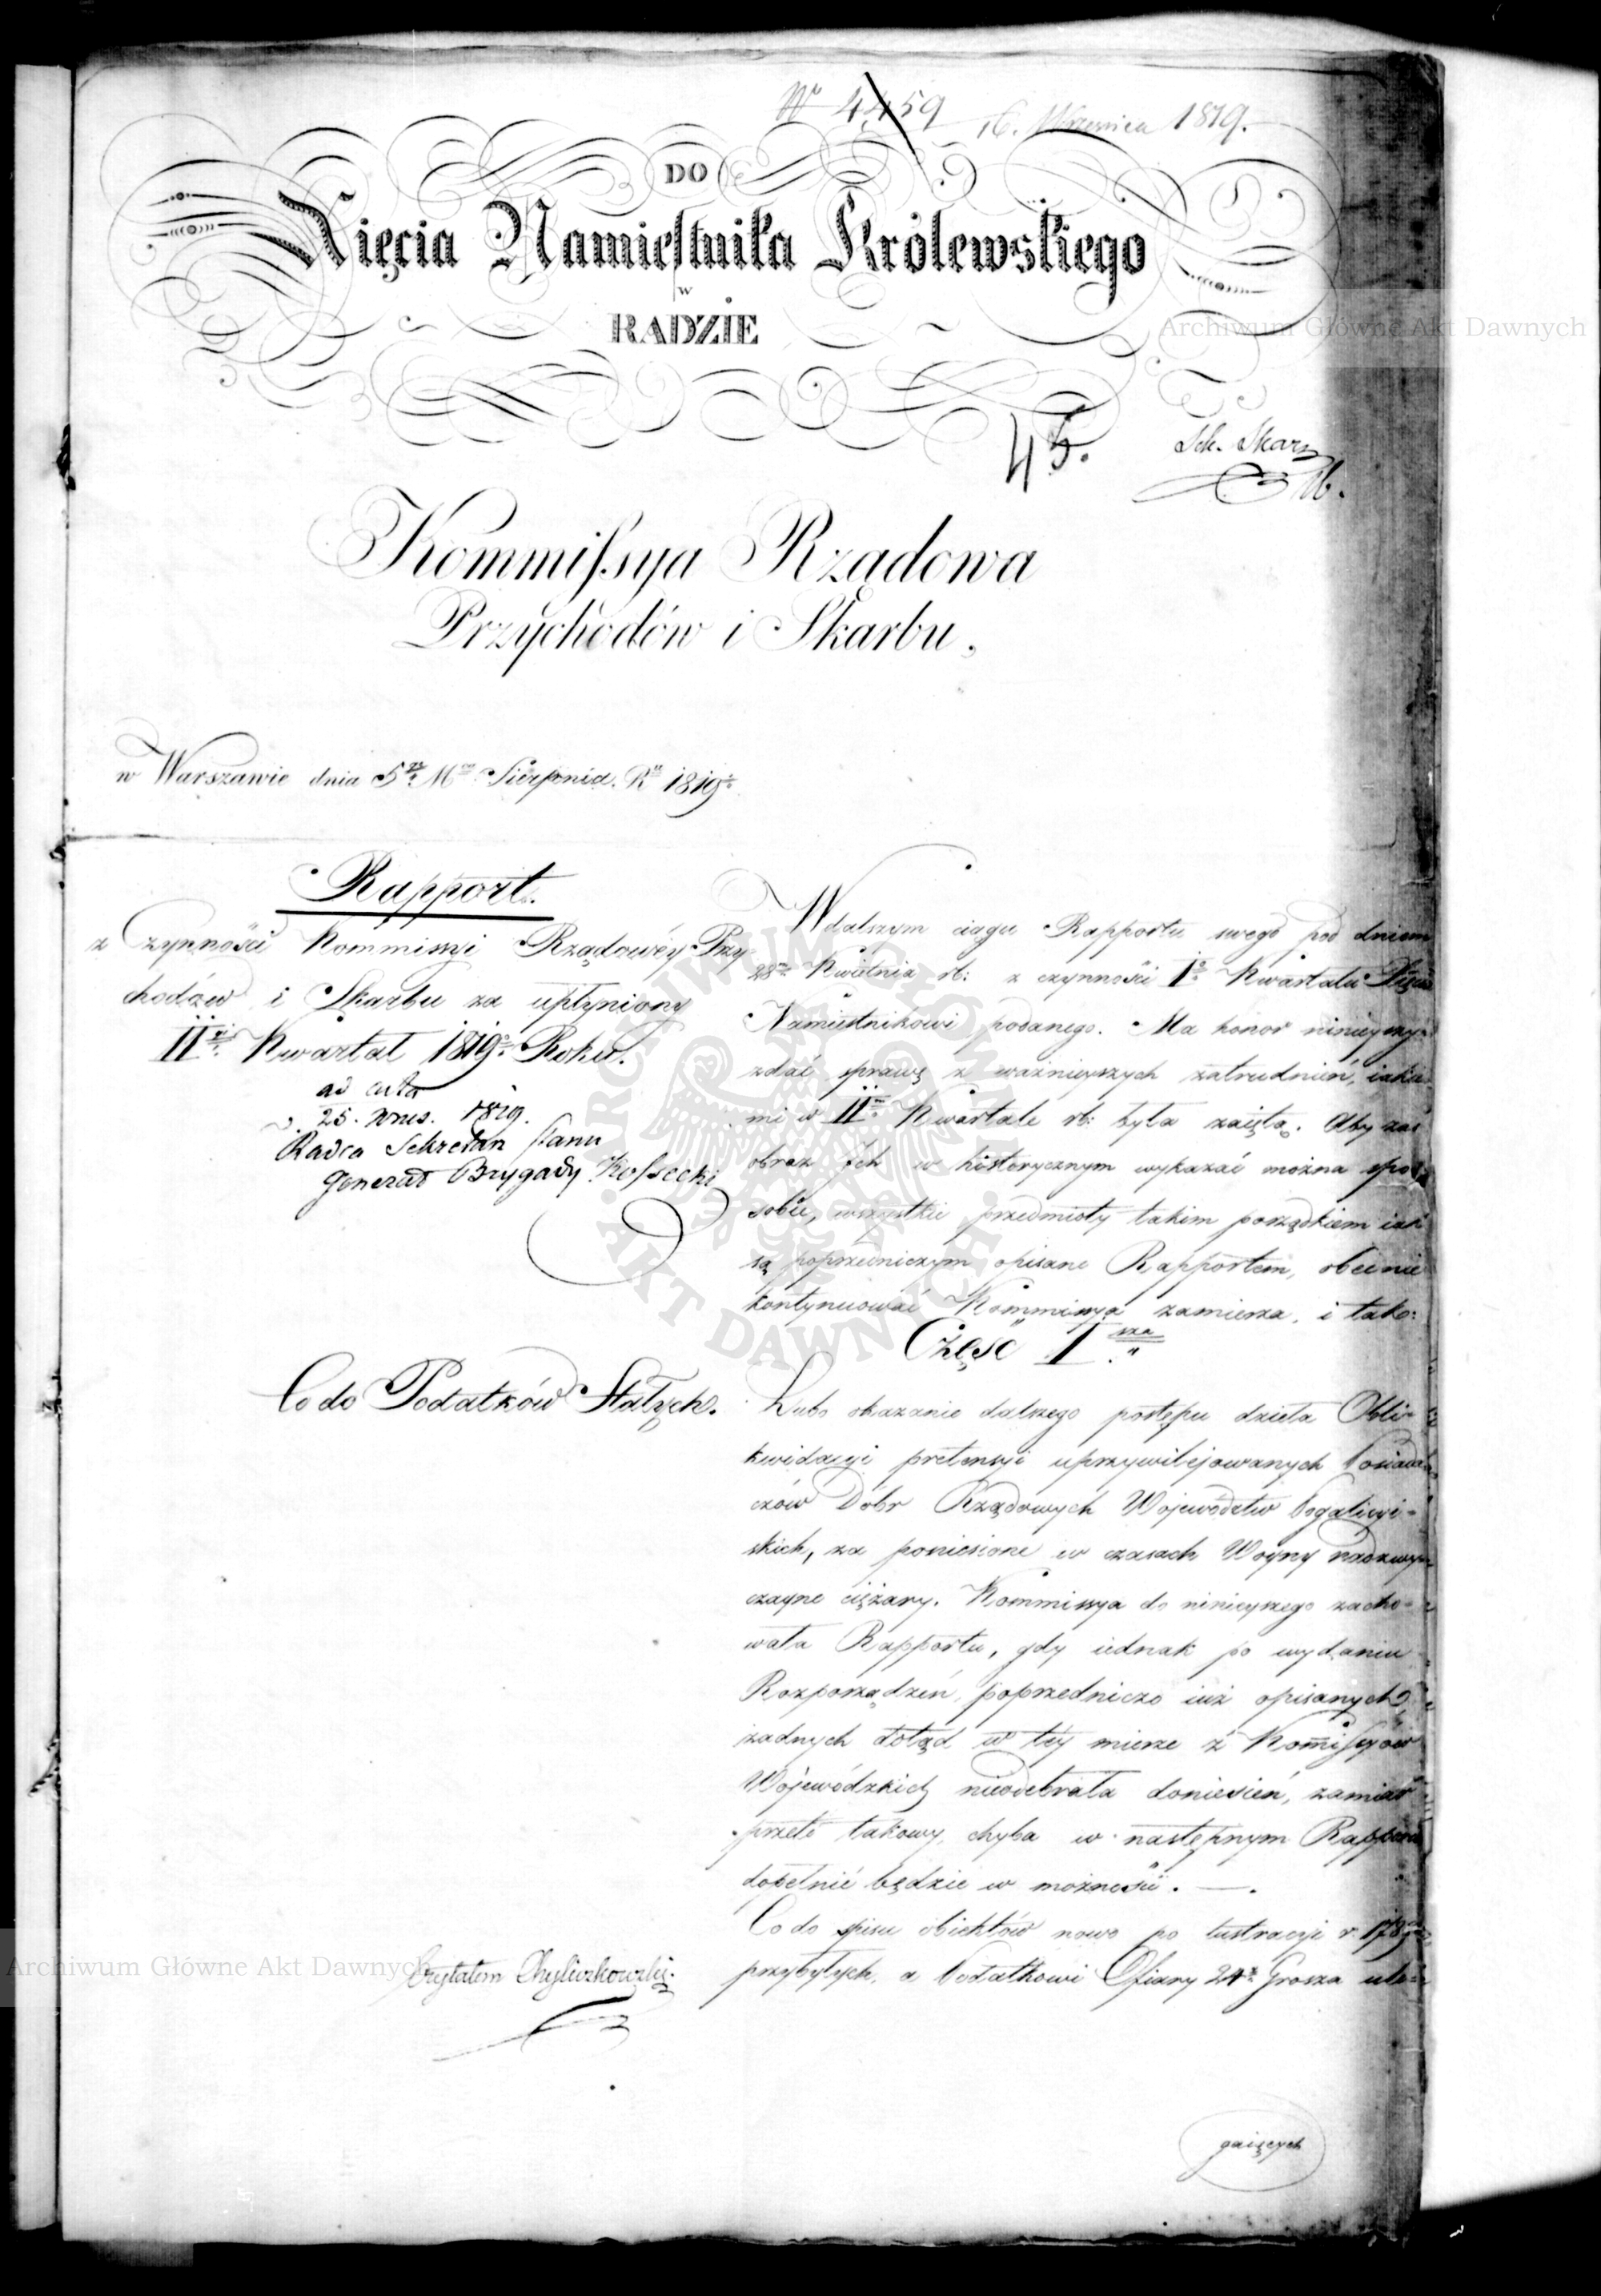 № 4459 16. Wrzesnia 1819.
DO
Xięcia Namiestnika Królewskiego
w
RADZIE
Archiwum Główne Akt Dawnych
45.
Sek. Skarb
Kommissya Rządowa
Przychodów i Skarbu,
w Warszawie dnia 5go Mca Sierpnia. Ru 1819.
Rapport.
z Czynności Kommissyi Rządowéy Przy
chodów i Skarbu za upłyniony
IIgi Kwartał 1819o Roku.
ad acta
d. 25. Wrzes. 1819.
Radca Sekretarz Stanu
Generał Brygady Kossecki
W dalszym ciągu Rapportu swego pod dniem
28m Kwietnia rb: z czynności Io Kwartału Xięciu
Namiestnikowi podanego. Ma honor ninieyszym
zdać sprawę z ważnieyszych zatrudnień, iakie
mi w IIm Kwartale rb: była zaiętą. Aby zaś
obraz Ich w historycznym wykazać można spo
sobie, wszystkie przedmioty takim porządkiem iak
są poprzedniczym opisane Rapportem, obecnie
kontynuować Kommissya zamierza, i tako:
Część Isza
Co do Podatków Stałych.
Lubo okazanie dalszego postępu dzieła Obli-
kwidacyi pretensyi uprzywilejowanych Posiada
czów Dóbr Rządowych Województw Pogalicyi-
skich, za poniesione w czasach Woyny nadzwy
czayne ciężary. Kommissya do ninieyszego zacho-
wała Rapportu, gdy iednak po wydaniu
Rozporządzeń, poprzedniczo iuż opisanych,
żadnych dotąd w téy mierze z Kommissyów
Wojewódzkich nieodebrała doniesień, zamiar
przeto takowy, chyba w następnym Rapporcie
dopełnić będzie w możności. —.
Co do spisu obiektów nowo po lustracyi r. 1789
przybyłych, a Podatkowi Ofiary 24go Grosza ule-
Archiwum Główne Akt Dawnych
Czytałem Chyliczkowski
gaiących
ARCHIWUM GŁÓWNE AKT DAWNYCH